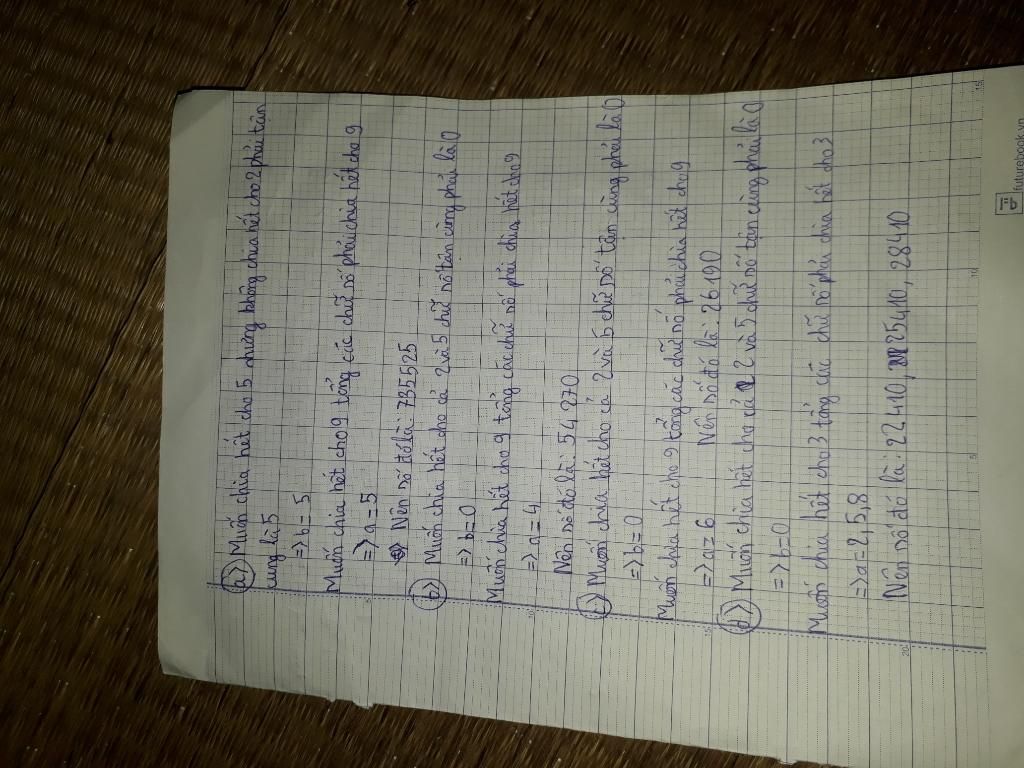 a) Muốn chia hết cho 5 nhưng không chia hết cho 2 phải tận
cùng là 5
=> b = 5
Muốn chia hết cho 9 tổng các chữ số phải chia hết cho 9
=> a = 5
Nên số đó là: 735525
b) Muốn chia hết cho cả 2 và 5 chữ số tận cùng phải là 0
=> b = 0
Muốn chia hết cho 9 tổng các chữ số phải chia hết cho 9
=> a = 4
Nên số đó là: 54 270
c) Muốn chia hết cho cả 2 và 5 chữ số tận cùng phải là 0
=> b = 0
Muốn chia hết cho 9 tổng các chữ số phải chia hết cho 9
=> a = 6 Nên số đó là: 26190
d) Muốn chia hết cho cả 2 và 5 chữ số tận cùng phải là 0
=> b = 0
Muốn chia hết cho 3 tổng các chữ số phải chia hết cho 3
=> a = 2, 5, 8
Nên số đó là: 22410, 25410, 28410
5
10
15
20
5
10
15
futurebook.vn